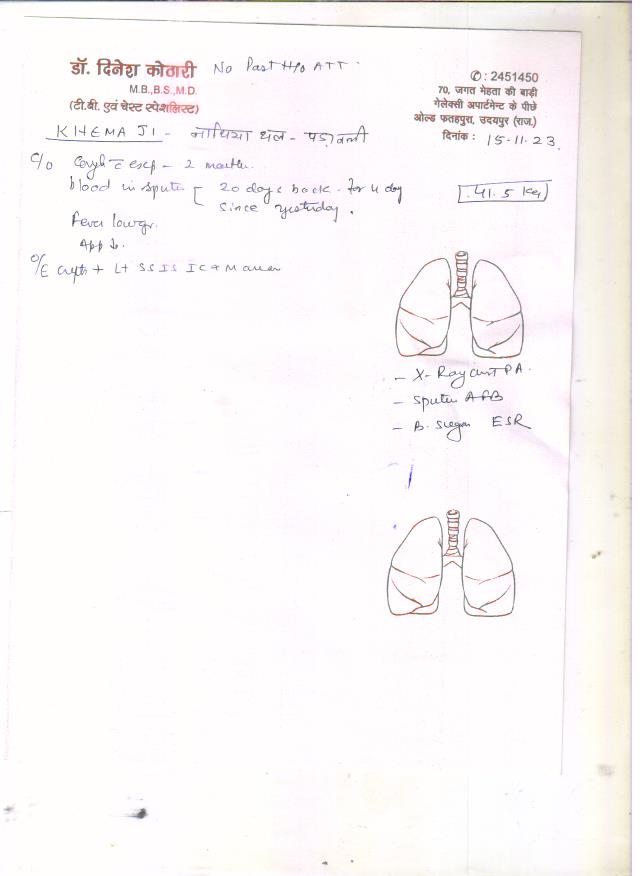 डॉ. दिनेश कोठारी
M.B.,B.S.,M.D.
(टी.बी. एवं चेस्ट स्पेशलिस्ट)
No Past H/o ATT
✆ : 2451450
70, जगत मेहता की बाड़ी
गेलेक्सी अपार्टमेन्ट के पीछे
ओल्ड फतहपुरा, उदयपुर (राज.)
दिनांक : 15.11.23
KHEMA JI -
C/o Cough c̄ exp - 2
blood in sputu [ 20 days back . for 4 day
since yesterday .
41.5 Kg
Fever lowgr.
App ↓.
O/E + Lt SS IS IC +
- X-Ray PA.
- Sputu AFB
- B. Sugar ESR